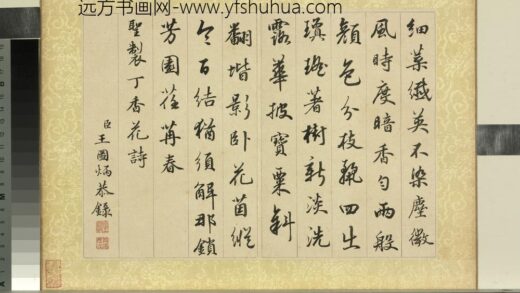 远方书画网-www.yfshuhua.com
細蕊纖英不染塵微
風時度暗香勻兩般
顏色分枝靘四出
瓊瑤著樹新淡洗
露華披寶粟斜
翻堦影臥花茵縱
令百結猶須解那鎖
芳園荏苒春
聖製丁香花詩
臣王圖炳恭錄